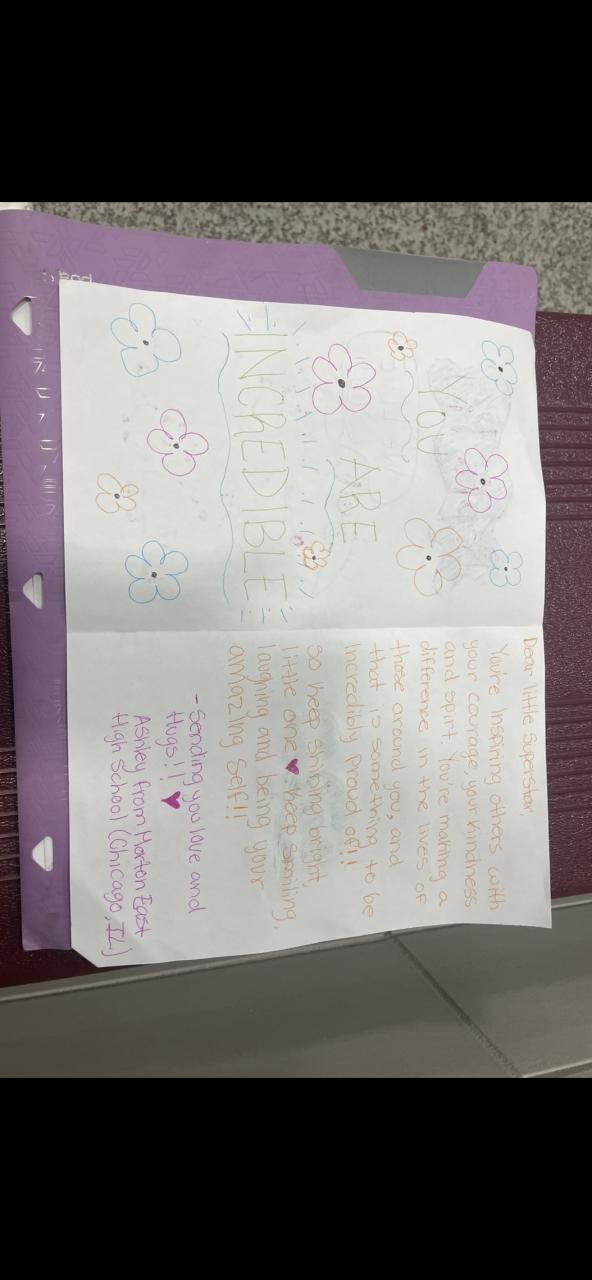 YOU
ARE
INCREDIBLE
Dear little superstar,
You're inspiring others with
your courage, your kindness
and spirit. You're making a
difference in the lives of
those around you, and
that is something to be
incredibly proud of!!
So keep shining bright,
little one ♥ keep smiling,
laughing and being your
amazing self!!
- Sending you love and
Hugs!! ♥
Ashley from Morton East
High School (Chicago, IL)